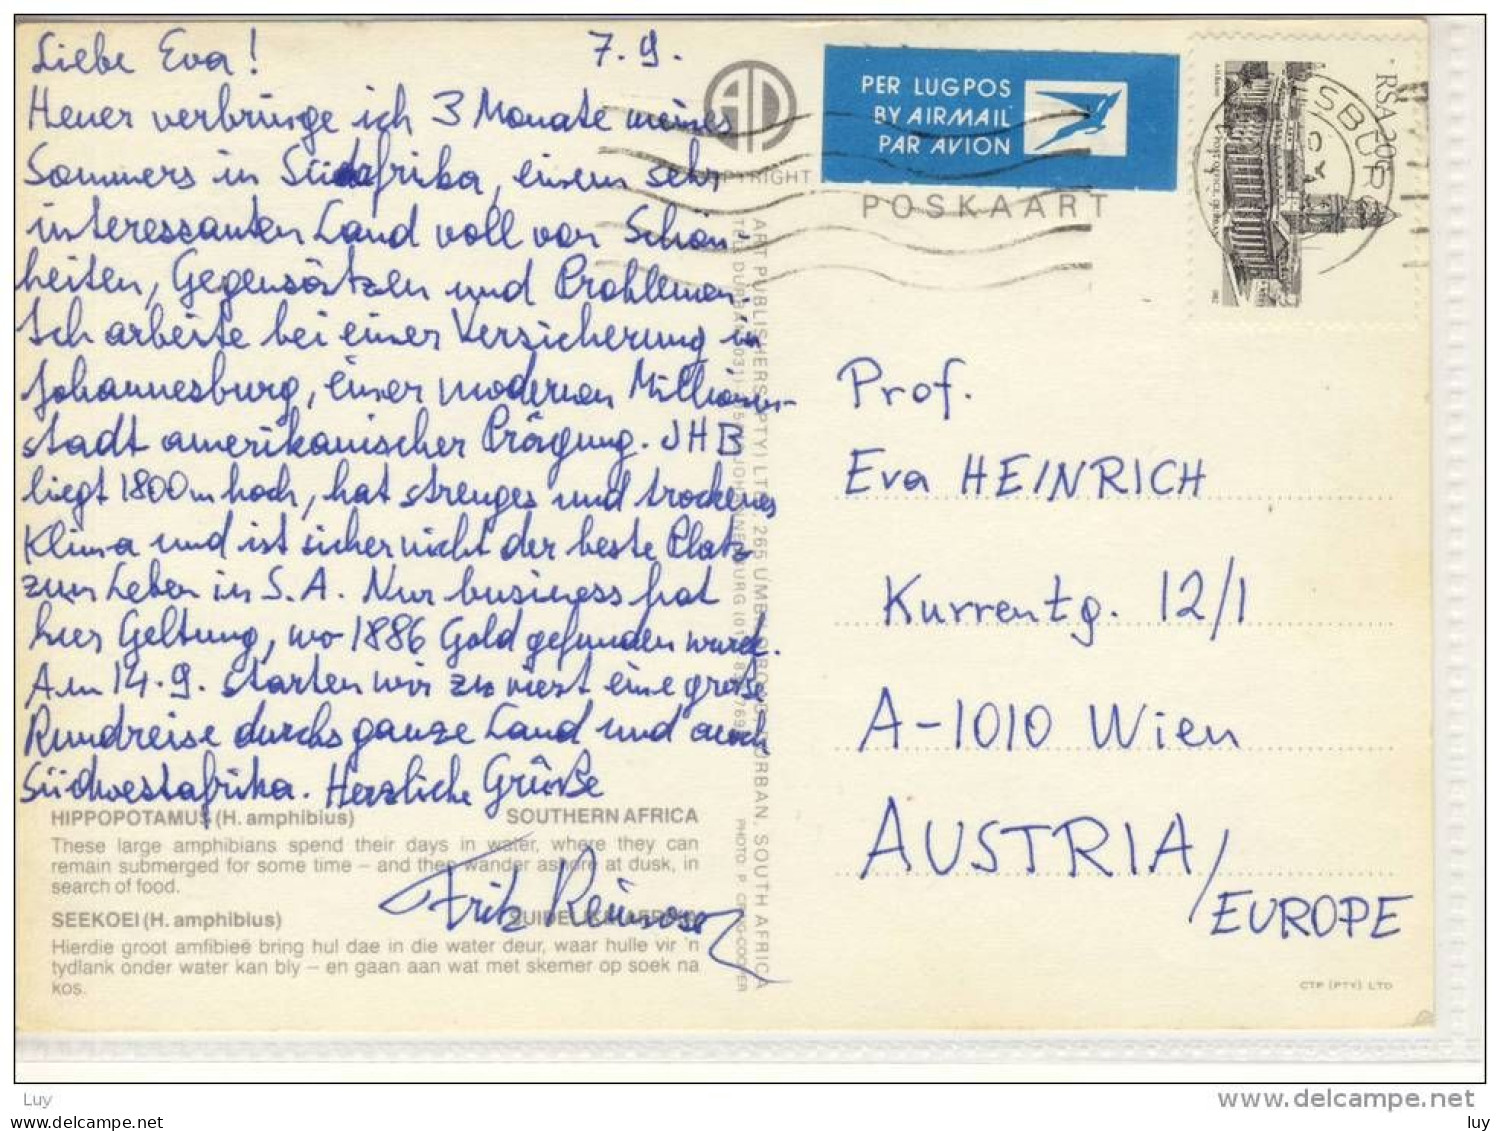 Liebe Eva! 7.9.
Heuer verbringe ich 3 Monate meines
Sommers in Südafrika, einem sehr
interessanten Land voll von Schön-
heiten, Gegensätzen und Problemen.
Ich arbeite bei einer Versicherung in
Johannesburg, einer modernen Millionen-
stadt amerikanischer Prägung. JHB
liegt 1800m hoch, hat strenges und trockenes
Klima und ist sicher nicht der beste Platz
zum Leben in S.A. Nur business hat
hier Geltung, wo 1886 Gold gefunden wurde.
Am 14.9. starten wir zu viert eine große
Rundreise durchs ganze Land und auch
Südwestafrika. Herzliche Grüße
Fritz
HIPPOPOTAMUS (H. amphibius) SOUTHERN AFRICA
These large amphibians spend their days in water, where they can
remain submerged for some time – and then wander ashore at dusk, in
search of food.
SEEKOEI (H. amphibius) SUIDELIKE AFRIKA
Hierdie groot amfibieë bring hul dae in die water deur, waar hulle vir 'n
tydlank onder water kan bly – en gaan aan wat met skemer op soek na
kos.
COPYRIGHT
ART PUBLISHERS (PTY) LTD., 265 UMBILO ROAD, DURBAN, SOUTH AFRICA
PER LUGPOS
BY AIRMAIL
PAR AVION
POSKAART
RSA 20c
Prof.
Eva HEINRICH
Kurrentg. 12/1
A-1010 Wien
AUSTRIA/
EUROPE
CTP (PTY) LTD
Luy
www.delcampe.net
luy
luy